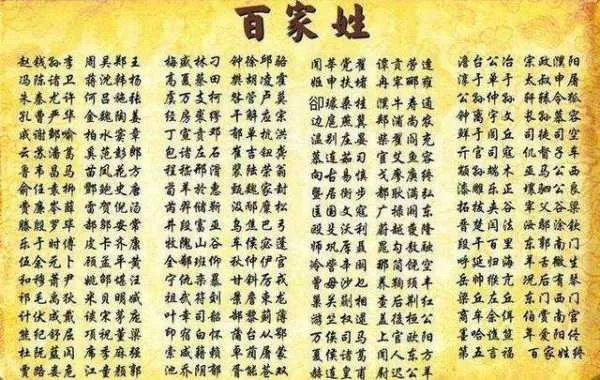 百家姓
赵钱孙李 周吴郑王
冯陈褚卫 蒋沈韩杨
朱秦尤许 何吕施张
孔曹严华 金魏陶姜
戚谢邹喻 柏水窦章
云苏潘葛 奚范彭郎
鲁韦昌马 苗凤花方
俞任袁柳 酆鲍史唐
费廉岑薛 雷贺倪汤
滕殷罗毕 郝邬安常
乐于时傅 皮卞齐康
伍余元卜 顾孟平黄
和穆萧尹 姚邵湛汪
祁毛禹狄 米贝明臧
计伏成戴 谈宋茅庞
熊纪舒屈 项祝董梁
杜阮蓝闵 席季麻强
贾路娄危 江童颜郭
梅盛林刁 钟徐邱骆
高夏蔡田 樊胡凌霍
虞万支柯 昝管卢莫
经房裘缪 干解应宗
丁宣贲邓 郁单杭洪
包诸左石 崔吉钮龚
程嵇邢滑 裴陆荣翁
荀羊於惠 甄曲家封
芮羿储靳 汲邴糜松
井段富巫 乌焦巴弓
牧隗山谷 车侯宓蓬
全郗班仰 秋仲伊宫
宁仇栾暴 甘钭厉戎
祖武符刘 景詹束龙
叶幸司韶 郜黎蓟薄
印宿白怀 蒲邰从鄂
索咸籍赖 卓蔺屠蒙
池乔阴郁 胥能苍双
闻莘党翟 谭贡劳逄
姬申扶堵 冉宰郦雍
郤璩桑桂 濮牛寿通
边扈燕冀 郏浦尚农
温别庄晏 柴瞿阎充
慕连茹习 宦艾鱼容
向古易慎 戈廖庾终
暨居衡步 都耿满弘
匡国文寇 广禄阙东
殴殳沃利 蔚越夔隆
师巩厍聂 晁勾敖融
冷訾辛阚 那简饶空
曾毋沙乜 养鞠须丰
巢关蒯相 查后荆红
游竺权逯 盖益桓公
万俟司马 上官欧阳
夏侯诸葛 闻人东方
赫连皇甫 尉迟公羊
澹台公冶 宗政濮阳
淳于单于 太叔申屠
公孙仲孙 轩辕令狐
钟离宇文 长孙慕容
鲜于闾丘 司徒司空
亓官司寇 仉督子车
颛孙端木 巫马公西
漆雕乐正 壤驷公良
拓跋夹谷 宰父谷梁
晋楚闫法 汝鄢涂钦
段干百里 东郭南门
呼延归海 羊舌微生
岳帅缑亢 况后有琴
梁丘左丘 东门西门
商牟佘佴 伯赏南宫
墨哈谯笪 年爱阳佟
第五言福 百家姓终